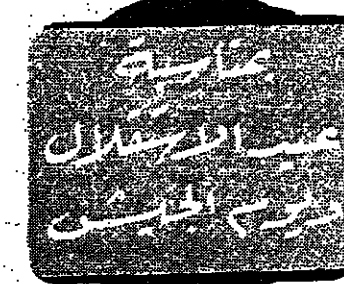 بمناسبة
عيد الاستقلال
ويوم الجيش